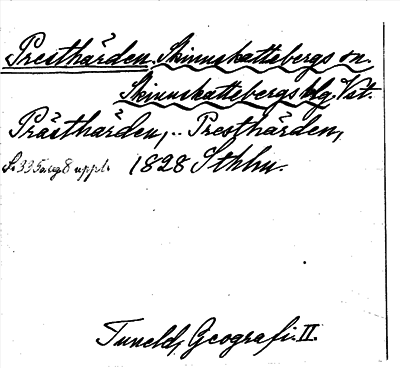 Presthärden. Skinnskattebergs sn.
Skinnskattebergs blg. Vst.
Prästhärden, .. Presthärden,
S. 335 8 uppl. 1828 Sthlm.
Tuneld, Geografi. II.